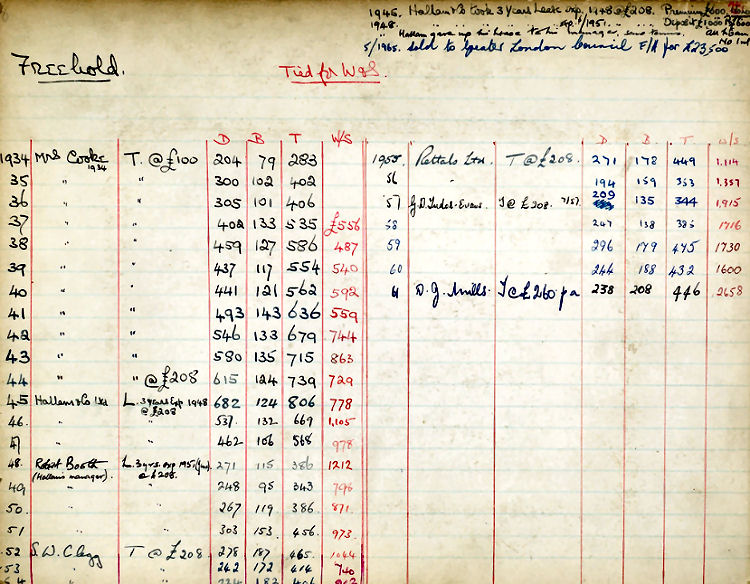 1946. Hallam & Co took 3 years Lease exp. 1948 @ £208. Premium £600.
1948. " " " " exp. 1/1951. " " Deposit £1000
" Hallam gave up his house to his manager, same terms.
5/1965. Sold to Greater London Council F/H for £23,500
FREEhold.
Tied for W&S.
D B T W/S D B T W/S
1934 Mrs Cooke 1934 T. @ £100 204 79 283 1955 Rettals Ltd. T @ £208. 271 178 449 1,114
35 " " 300 102 402 56 " 194 159 353 1,357
36 " " 305 101 406 57 G.D. Tudor-Evans. T @ £208. 7/57. 209 135 344 1,915
37 " " 402 133 535 £556 58 247 138 385 1716
38 " " 459 127 586 487 59 296 179 475 1730
39 " " 437 117 554 540 60 244 188 432 1600
40 " " 441 121 562 592 61 D. G. Mills. T @ £260 pa 238 208 446 2658
41 " " 493 143 636 559
42 " " 546 133 679 744
43 " " 580 135 715 863
44 " " @ £208 615 124 739 729
45 Hallam & Co Ltd L. 3 years Exp 1948 @ £208 682 124 806 778
46. " " 537. 132 669 1,105
47 " " 462 106 568 978
48. Robert Booth (Hallams manager). L. 3 yrs. exp 1951 (Jan). @ £208. 271 115 386 1212
49 " " 248 95 343 796
50. " " 267 119 386. 871
51 " " 303 153. 456. 973
52 S. W. Clegg T @ £208 278 187 465. 1044
53 " " 242 172 414 740